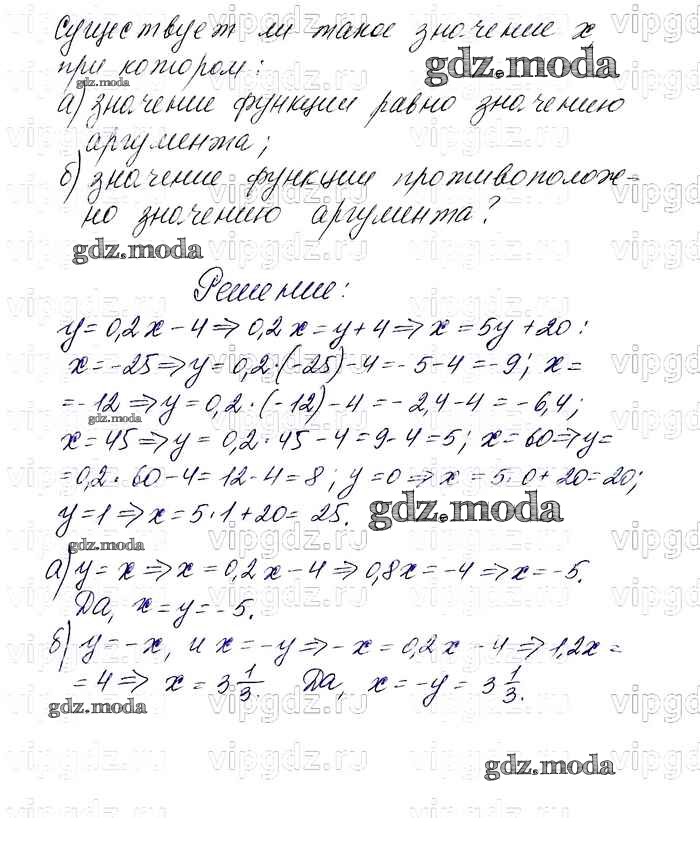 Существует ли такое значение x
при котором:
gdz.moda
gdz.moda
а) значение функции равно значению
аргумента;
б) значение функции противополож-
но значению аргумента?
gdz.moda
Решение:
y = 0,2x - 4 => 0,2x = y + 4 => x = 5y + 20:
x = -25 => y = 0,2·(-25) - 4 = -5 - 4 = -9; x =
= -12 => y = 0,2·(-12) - 4 = -2,4 - 4 = -6,4;
gdz.moda
x = 45 => y = 0,2·45 - 4 = 9 - 4 = 5; x = 60 => y =
= 0,2·60 - 4 = 12 - 4 = 8; y = 0 => x = 5·0 + 20 = 20;
y = 1 => x = 5·1 + 20 = 25.
gdz.moda
gdz.moda
а) y = x => x = 0,2x - 4 => 0,8x = -4 => x = -5.
Да, x = y = -5.
б) y = -x, и x = -y => -x = 0,2x - 4 => 1,2x =
= 4 => x = 3 1/3. Да, x = -y = 3 1/3.
gdz.moda
gdz.moda
vipgdz.ru